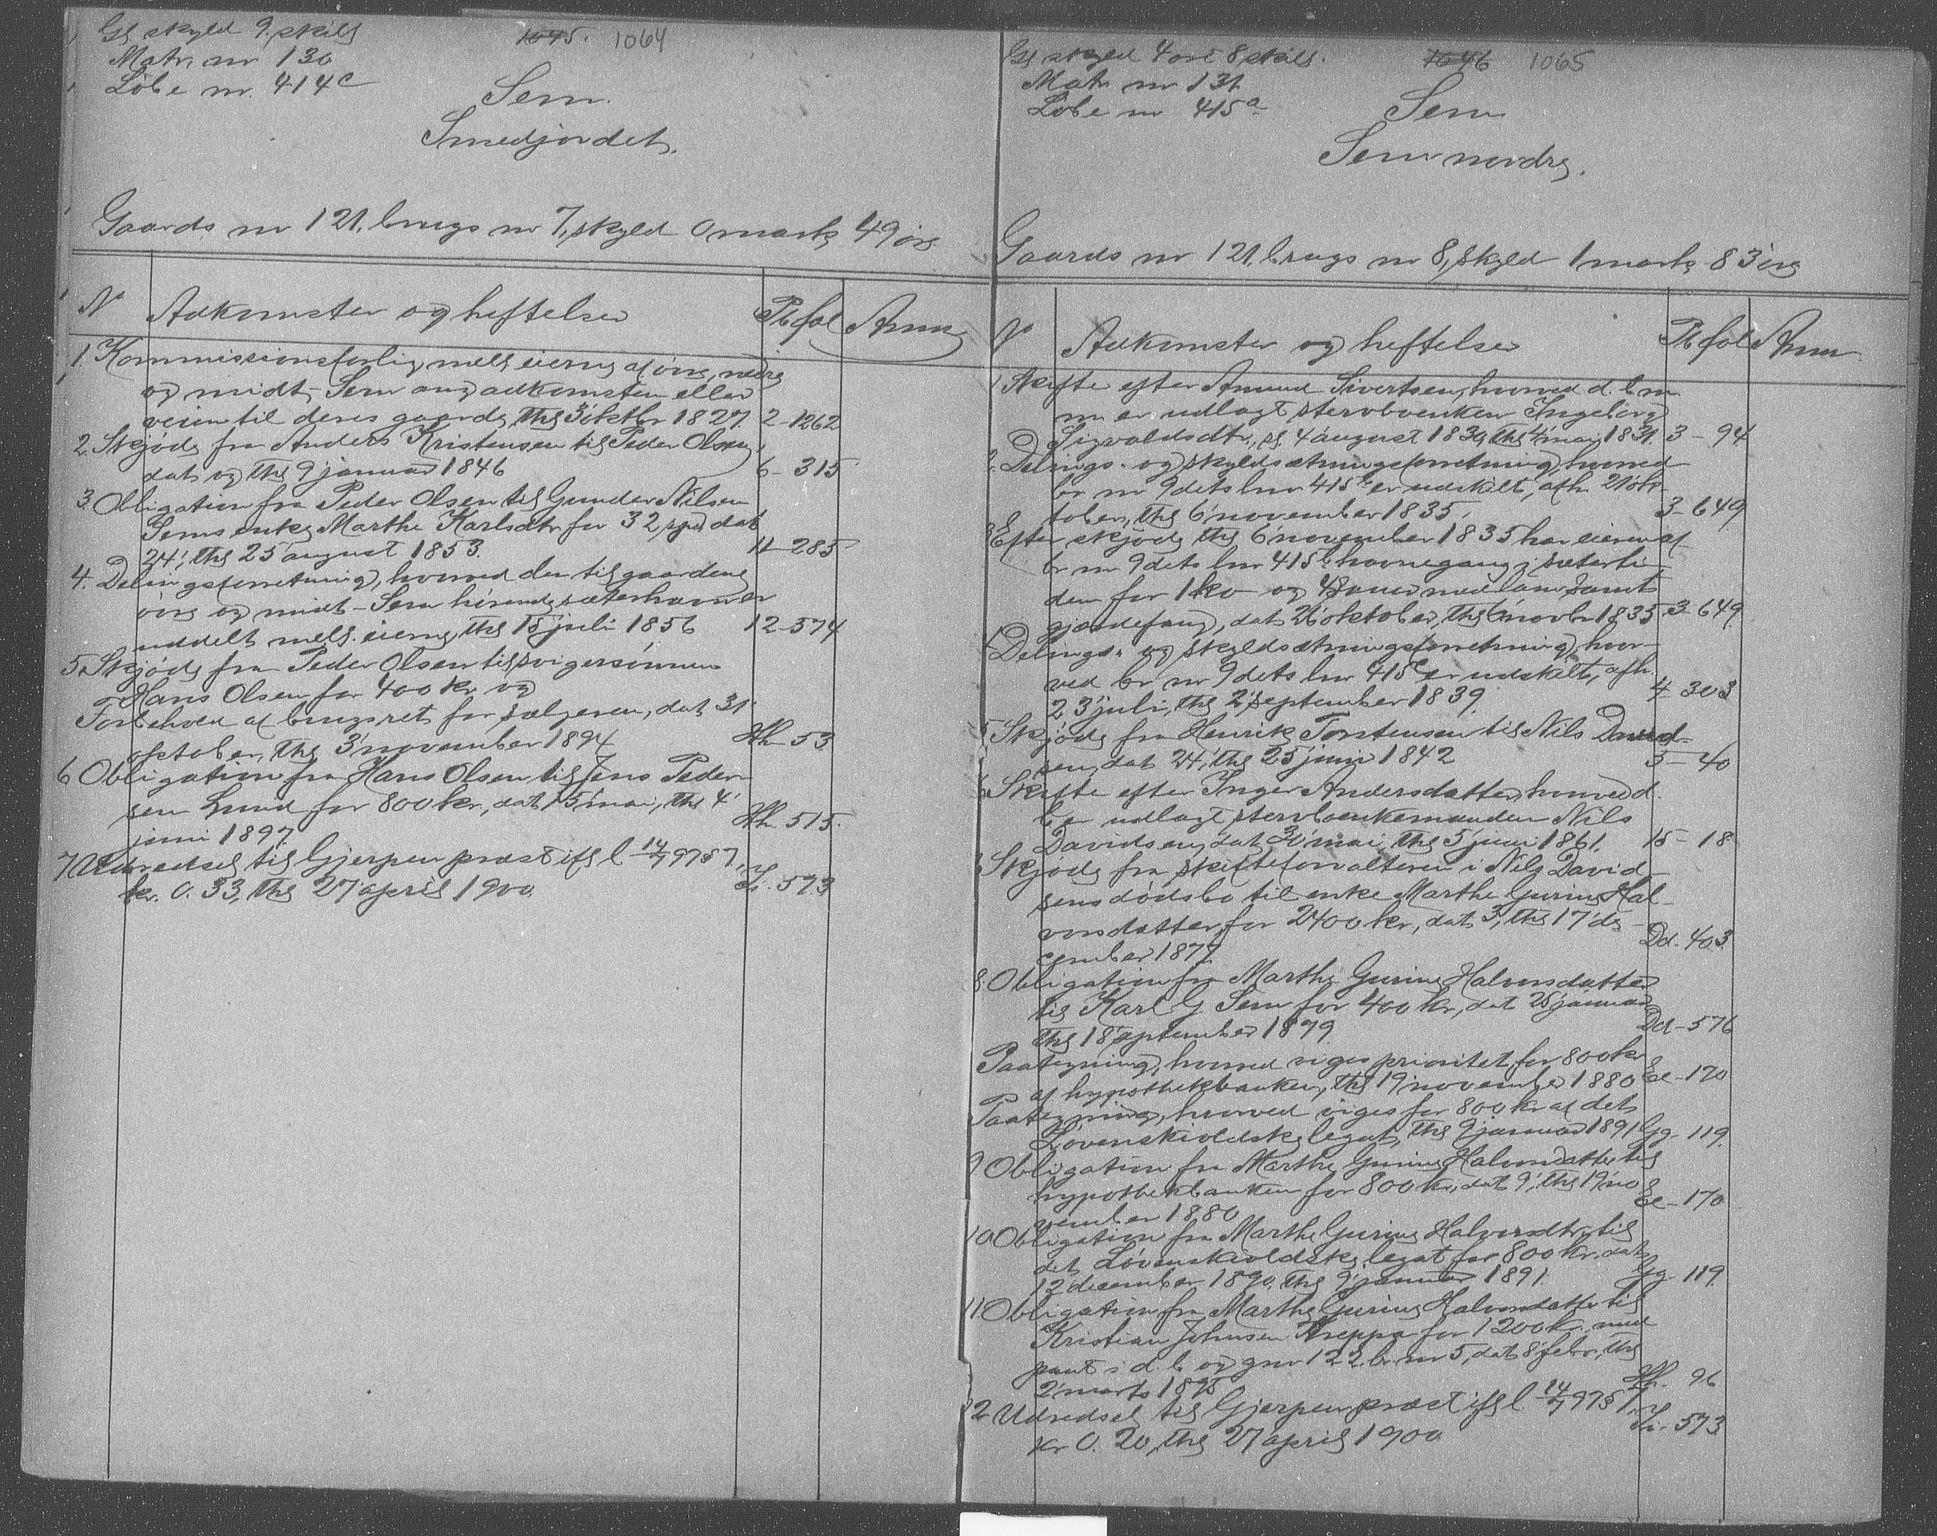 Gl skyld 9 skill
Matr. nr 130
Løbe nr. 414c
1045. 1064
Sem.
Smedjordet.
Gaards nr 121, brugs nr 7, skyld 0 mark 49 øre
No Adkomster og heftelser Pb fol Anm
1. Kommissionsforlig mell eierne af øvre, nedre
og midt-Sem ang adkomsten eller
veien til deres gaarde, thl 3' oktbr 1827 2-1262
2. Skjøde fra Anders Kristensen til Peder Olsen,
dat og thl 9 januar 1846 6-315
3. Obligation fra Peder Olsen til Gunder Nilsen
Sems enke Marthe Karlsdtr for 32 spd dat
24', thl 25 august 1853. 11-285
4. Delingsforretning, hvorved den til gaardene
øvre og midt-Sem hørende sæterhavn er
uddelt mell. eierne, thl 15 juli 1856 12-574
5. Skjøde fra Peder Olsen til svigersønnen
Hans Olsen for 400 kr og
Forbehold af brugsret for sælgeren, dat 31'
oktober, thl 3' november 1894 Hh-53
6 Obligation fra Hans Olsen til Jens Peder-
sen Lund for 800 kr, dat 15' mai, thl 4'
juni 1897. Hh. 515.
7 Udredsel til Gjerpen præst ifl l 14/7 97 § 7,
kr. 0.33, thl 27 april 1900. Ii. 573
Gl skyld 4 ort 8 skill.
Matr nr 131
Løbe nr 415a
1046 1065
Sem
Sem nordre.
Gaards nr 121, brugs nr 8, skyld 1 mark 83 øre
No Adkomster og heftelser Pb fol Anm.
1 Skifte efter Amund Sivertsen, hvorved d. b m
m er udlagt stervboenken Ingeborg
Sigvaldsdtr, sl 4 august 1830, thl 4' mai 1831. 3-94
2. Delings- og skyldsætningsforretning, hvorved
br nr 9 dets lnr 415b er udskilt, afh 21 ok-
tober, thl 6' november 1835. 3-649
3 Efter skjøde thl 6' november 1835 har eieren af
br nr 9 dets lnr 415b havnegang i sæterli-
den for 1 ko og 4 sauer med lam samt
gjærdefang, dat 26' oktober, thl 6' novbr 1835 3-649
4 Delings- og skyldsætningsforretning, hvor-
ved br nr 9 dets lnr 415c er udskilt, afh
23' juli, thl 2' september 1839. 4-303
5 Skjøde fra Henrik Torstensen til Nils David-
sen, dat 24', thl 25' juni 1842 5-40
6 Skifte efter Inger Andersdatter, hvorved d.
b er udlagt stervboenkemanden Nils
Davidsen, dat 31' mai, thl 5' juni 1861. 15-18
Skjøde fra skifteforvalteren i Nils David-
sens dødsbo til enke Marthe Gurine Hal-
vorsdatter, for 2400 kr, dat 3', thl 17' de-
cember 1877. Dd. 403.
8. Obligation fra Marthe Gurine Halvorsdatter
til Karl G Sem for 400 kr, dat 25' januar
thl 18' september 1879 Dd-576
Paategning, hvorved viges prioritet for 800 kr
af hypothekbanken, thl 19' november 1880 Ee-170
Paategning, hvorved viges for 800 kr af det
Løvenskioldske legat, thl 9 januar 1891 Gg-119.
9 Obligation fra Marthe Gurine Halvorsdatter til
hypothekbanken for 800 kr, dat 9', thl 19' no-
vember 1880 Ee-170
10 Obligation fra Marthe Gurine Halvorsdtr til
det Løvenskioldske legat for 800 kr, dat
12 december 1890, thl 9' januar 1891. Gg-119
11 Obligation fra Marthe Gurine Halvorsdatter til
Kristian Johnsen Kreppa for 1200 kr, med
pant i d. b og gnr 122 br nr 5, dat 8' febr, thl
2' marts 1895 Hh. 96
12 Udredsel til Gjerpen præst ifl l 14/7 97 § 7,
kr 0.20, thl 27 april 1900 Ii-573